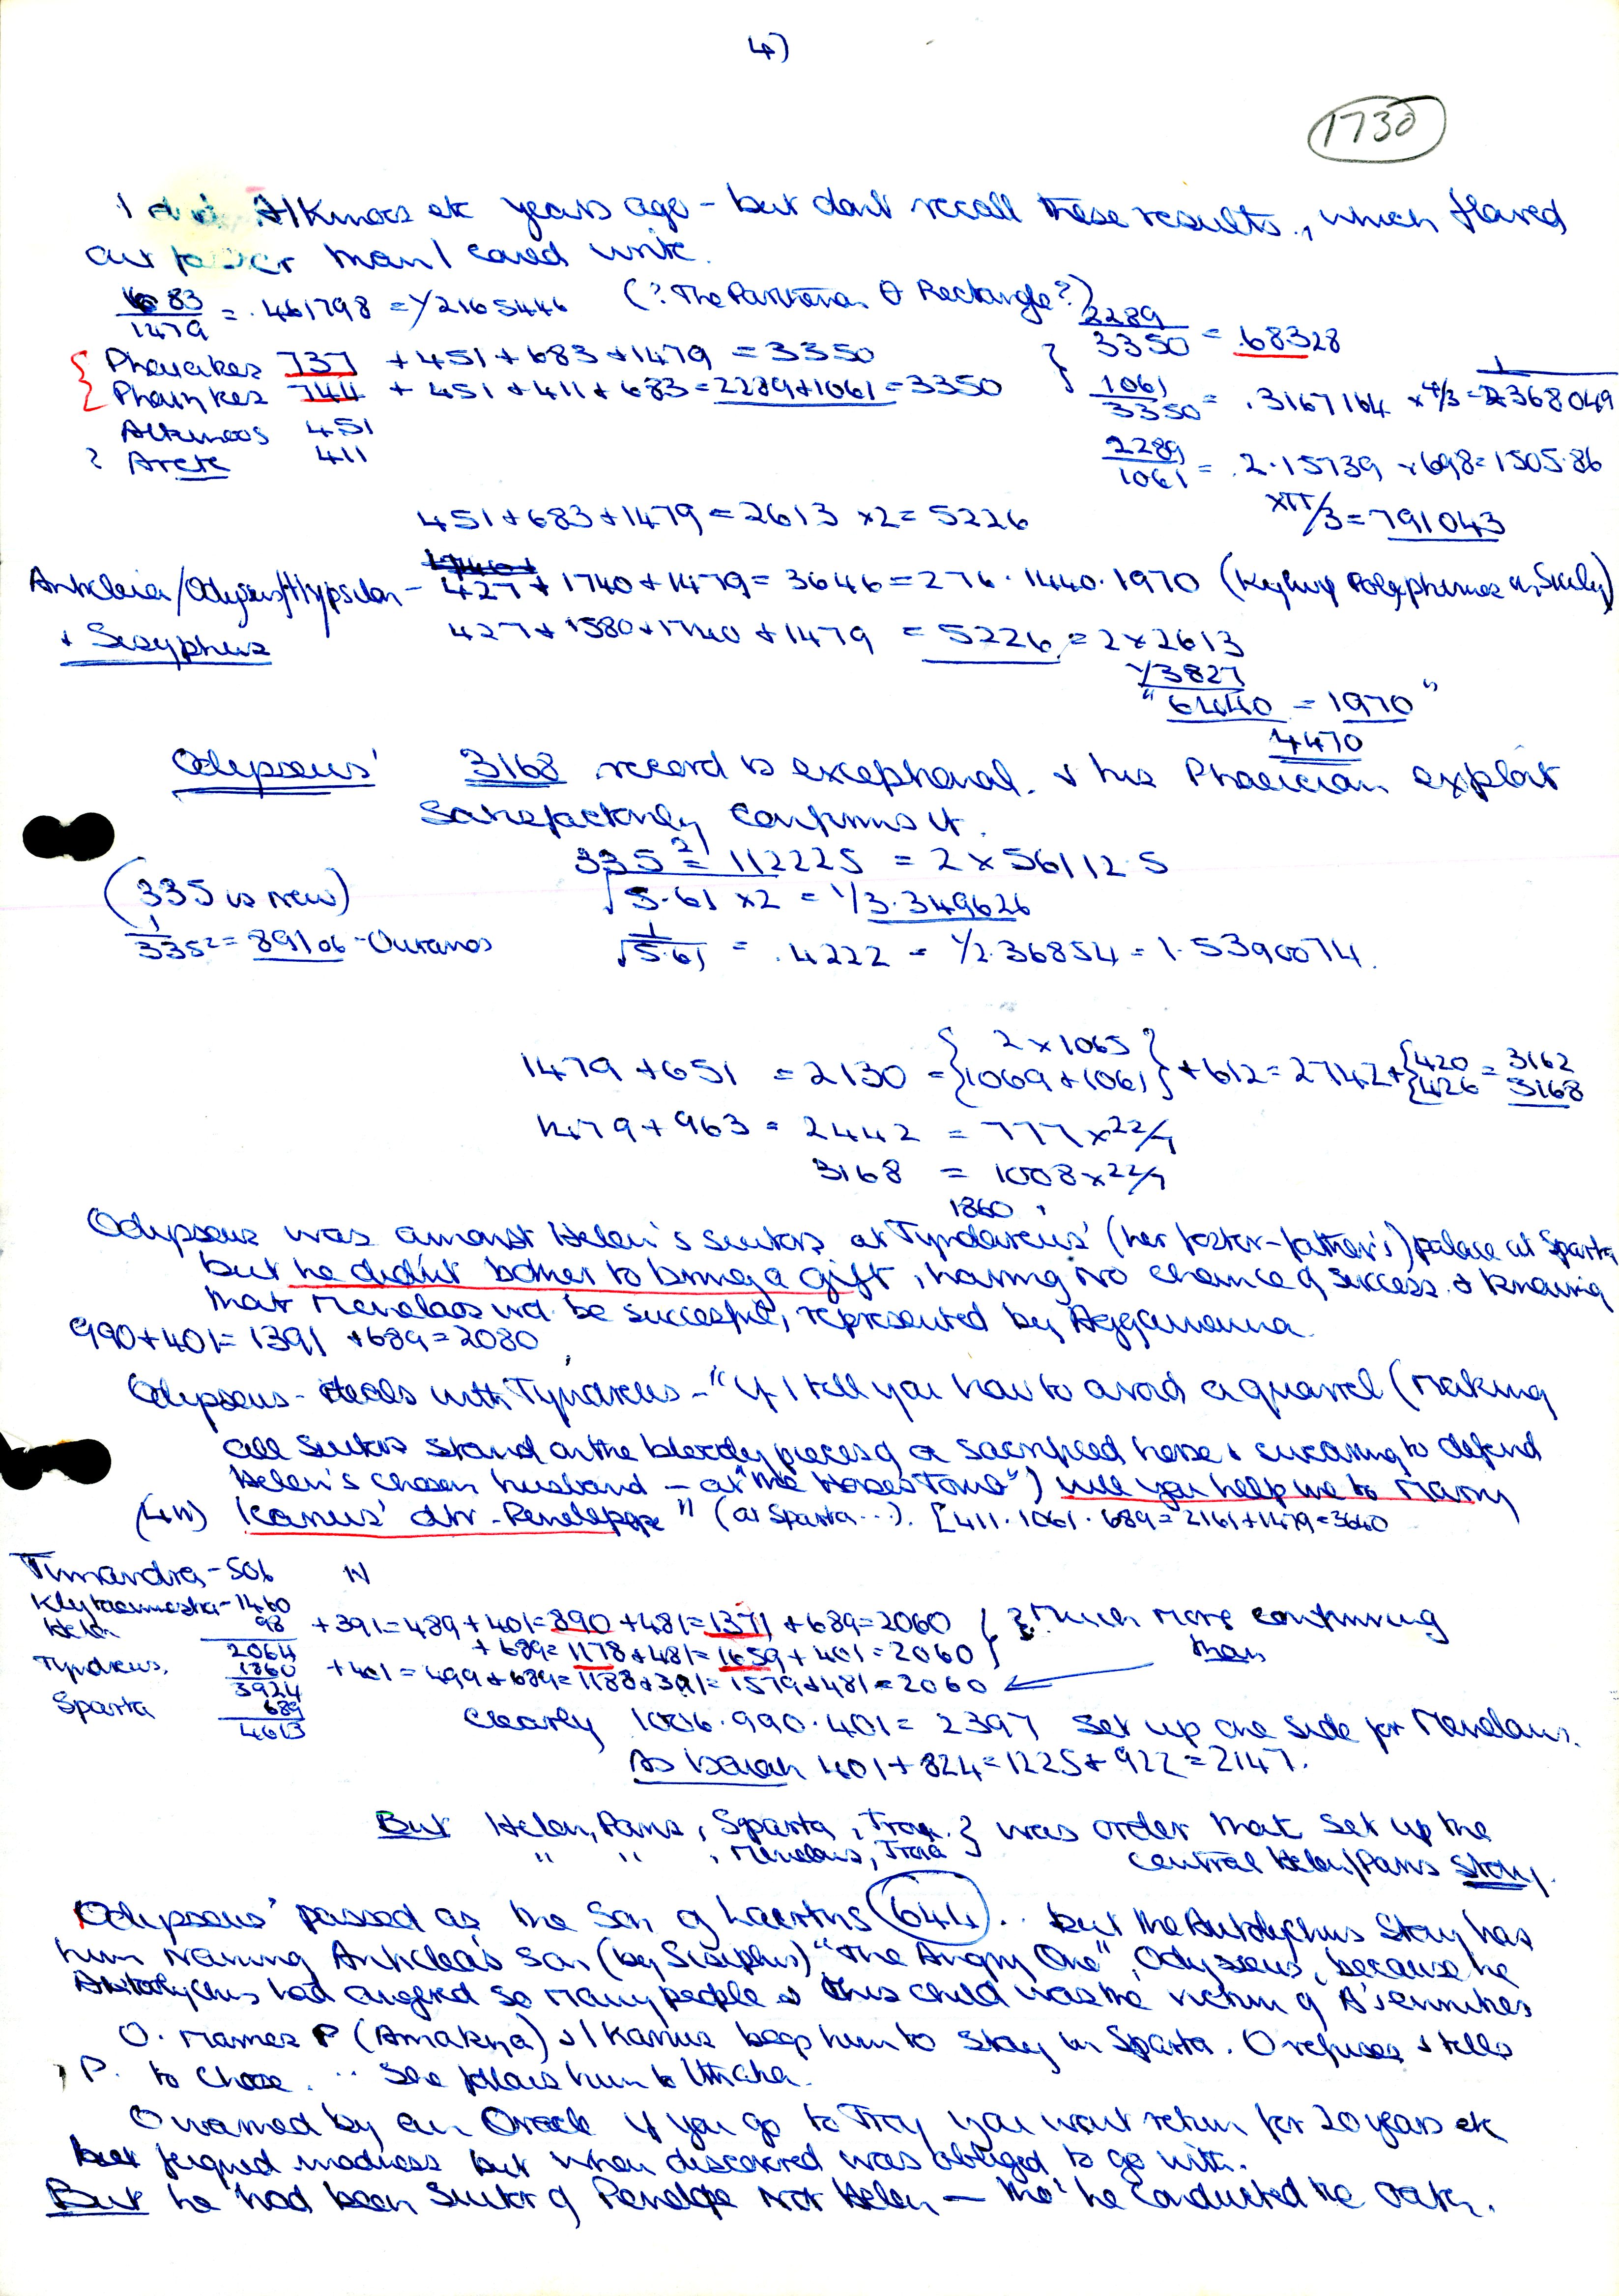 4)
1730
I did Alkinoos etc years ago - but don't recall these results, which flowed
out faster than I could write.
683/1479 = .461798 = 1/2165446 (? The Parthenon θ Rectangle?)
2289/3350 = .68328
{ Phaiakes 737 + 451 + 683 + 1479 = 3350
{ Phainkes 744 + 451 + 411 + 683 = 2289 + 1061 = 3350
} 1061/3350 = .3167164 x 4/3 = 1/2368049
Alkinoos 451
? Arete 411
2289/1061 = 2.15739 x 698 = 1505.86
xπ/3 = 791043
451 + 683 + 1479 = 2613 x 2 = 5226
Antikleia/Odysseus/Hypsilon - 427 + 1740 + 1479 = 3646 = 276 . 1440 . 1970 (Keying Polyphemos in Sicily)
+ Sisyphus
427 + 1580 + 1740 + 1479 = 5226 = 2 x 2613
1/3827
"6440 = 1970"
4470
Odysseus' 3168 record is exceptional. & his Phaeician exploit
Satisfactorily confirms it.
335² = 112225 = 2 x 56112.5
(335 is new)
√5.61 x 2 = 1/3.349626
1/335² = 89106 - Ouranos
1/√5.61 = .4222 = 1/2.36854 = 1.5390074.
1479 + 651 = 2130 = { 2 x 1065 / 1069 + 1061 } + 612 = 2742 + { 420 = 3162 / 426 3168
1479 + 963 = 2442 = 777 x 22/7
3168 = 1008 x 22/7
1860
Odysseus was amonst Helen's suitors at Tyndareus' (her foster-father's) palace at Sparta
but he didn't bother to bring a gift, having no chance of success & knowing
that Menelaos wd be succesful, represented by Aggamemna.
990 + 401 = 1391 + 689 = 2080
Odysseus - deals with Tyndreus - "If I tell you how to avoid a quarrel (making
all suitors stand on the bloody pieces of a sacrificed horse & swearing to defend
Helen's chosen husband - at "the Horses Tomb") will you help me to marry
(411) Icarius' dtr - Penelope" (at Sparta...). [411 . 1061 . 689 = 2161 + 1479 = 3640
Timandra - 506
Klytaemnestra - 1460
Helen 98 + 391 = 489 + 401 = 890 + 481 = 1371 + 689 = 2060 } Much more confirming
2064 + 689 = 1178 + 481 = 1659 + 401 = 2060 } than
Tyndreus. 1860 + 401 = 499 + 689 = 1188 + 391 = 1579 + 481 = 2060
3924
Sparta 689
4613
Clearly 1006 . 990 . 401 = 2397 set up one side for Menelaus.
As Isaiah 401 + 824 = 1225 + 922 = 2147.
But Helen, Paris, Sparta, Troy. } was order that set up the
" " , Menelaus, Troia } central Helen/Paris story.
Odysseus' passed as the son of Laertus (644).. but the Autolychus story has
him naming Antiklea's son (by Sisiphus) "The Angry One", Odysseus, because he
Autolychus had angered so many people & this child was the victim of A's enmities
O. marries P (Amakya) & Ikarius begs him to stay in Sparta. O refuses & tells
P. to choose. .. She follows him to Ithaka.
O warned by an Oracle if you go to Troy you wont return for 20 years etc
feigned madness but when discovered was obliged to go with.
But he had been suitor of Penelope not Helen - tho' he conducted the oath.